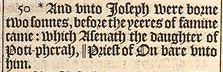 50 * And vnto Joseph were borne
two sonnes, before the yeeres of famine
came: which Asenath the daughter of
Poti-pherah, ||Priest of On bare vnto
him.